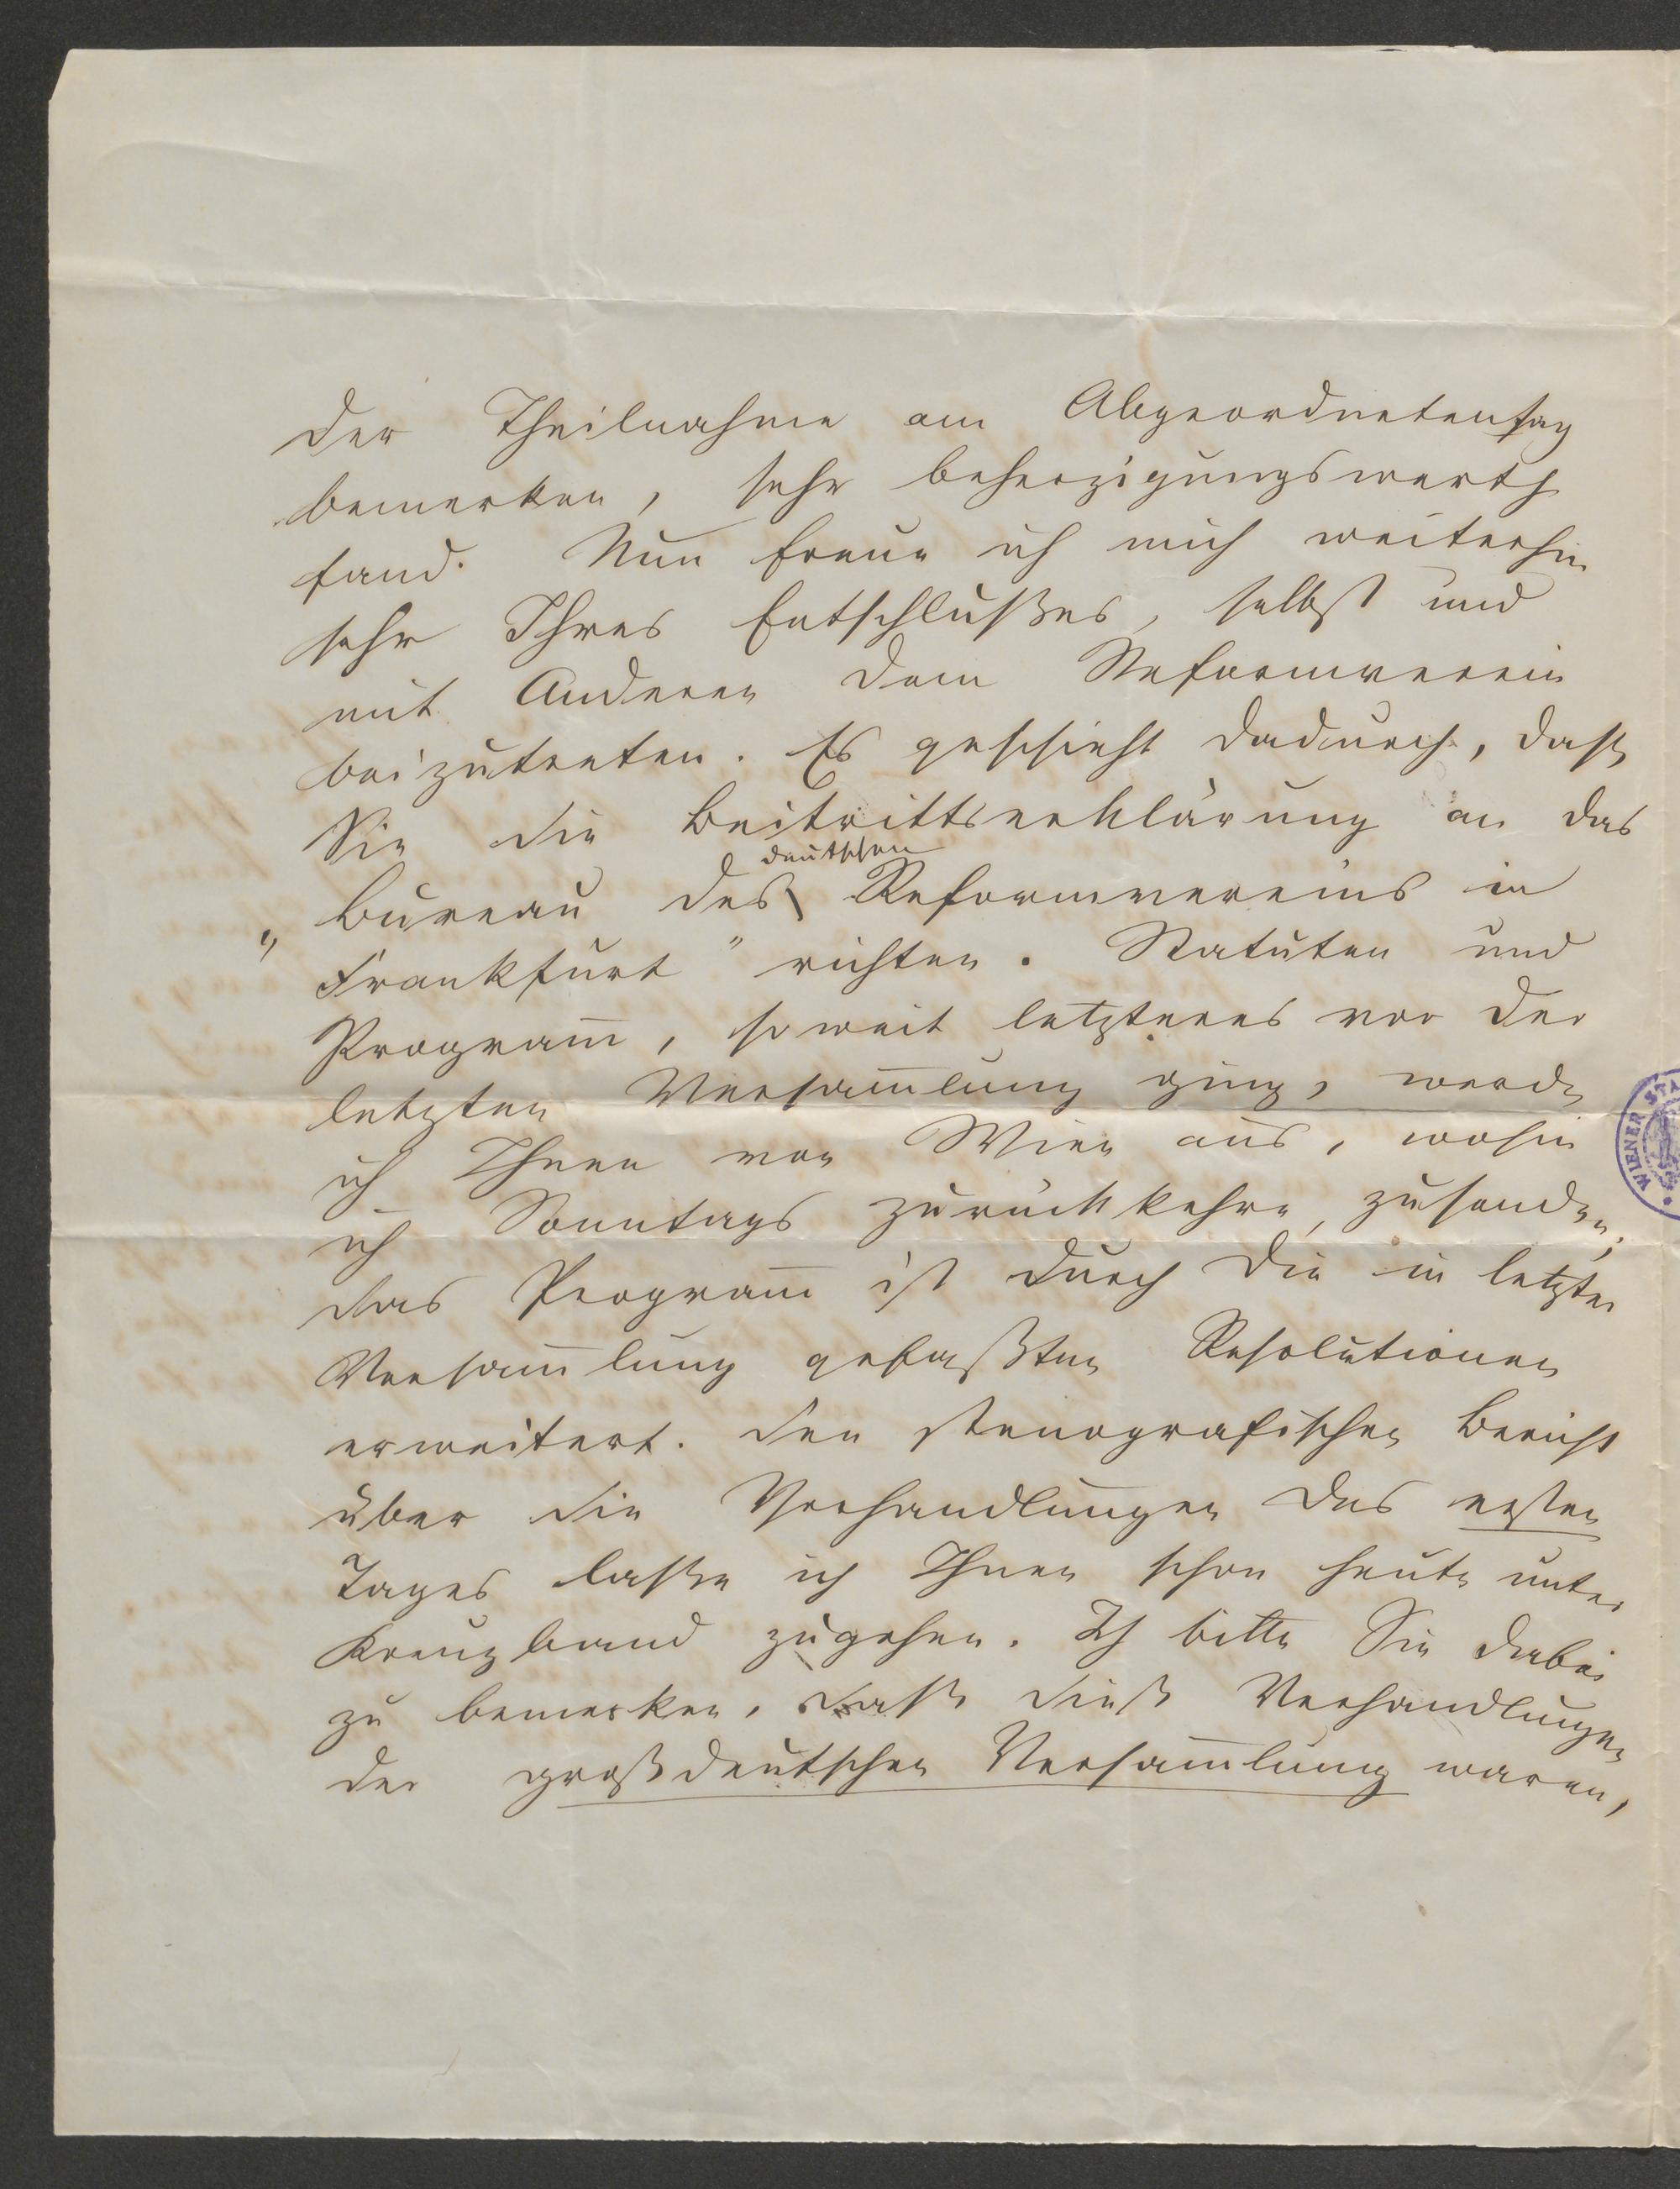 der Theilnahme am Abgeordnetentag
bemerken, sehr beherzigungswerth
fand. Nun freue ich mich weiterhin
sehr Ihres Entschlußes, selbst und
mit Anderen dem Reformverein
beizutreten. Es geschieht dadurch, daß
Sie die Beitrittserklärung an das
deutschen
„Bureau des Reformvereins in
Frankfurt" richten. Statuten und
Program̅, soweit letzteres vor der
letzten Versam̅lung ging, werde
ich Ihnen von Wien aus, wohin
ich Sonntags zurückkehre, zusenden;
das Program̅ ist durch die in letzter
Versam̅lung gefaßten Resolutionen
erweitert. Den stenografischen Bericht
über die Verhandlungen des ersten
Tages laße ich Ihnen schon heute unter
Kreuzband zugehen. Ich bitte Sie dabei
zu bemerken, daß dieß Verhandlungen
der großdeutschen Versam̅lung waren,
WIENER STA